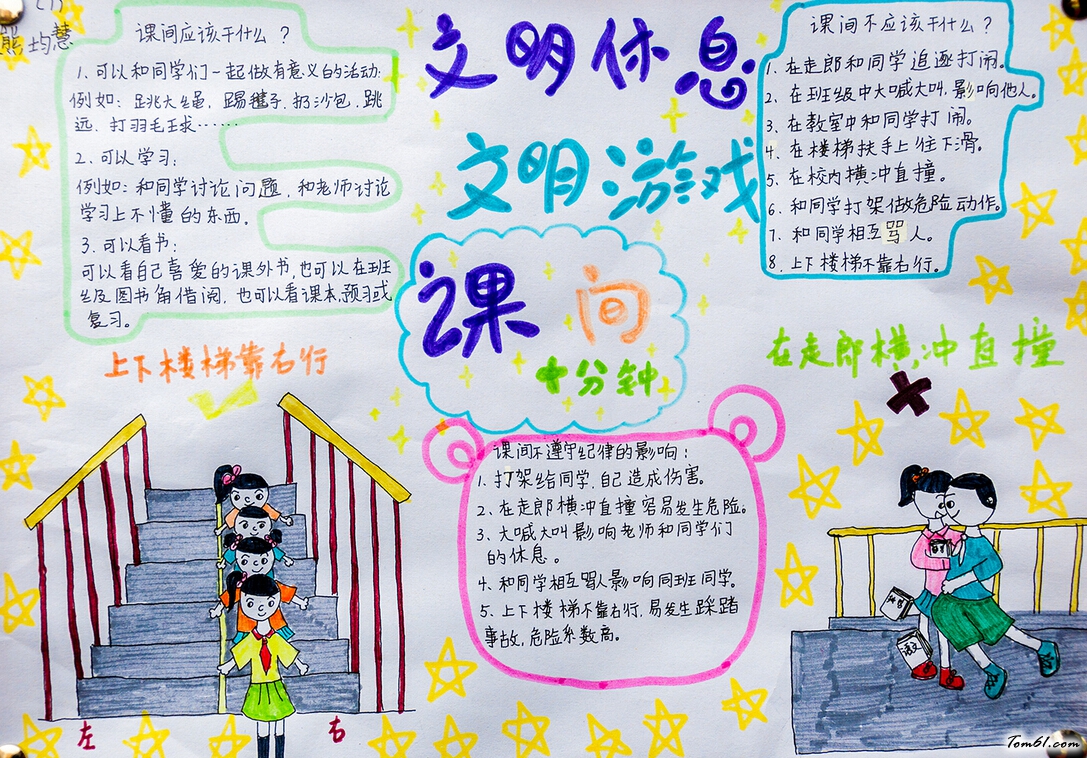 熊均慧
课间应该干什么？
1. 可以和同学们一起做有意义的活动:
例如: 跳大绳, 踢毽子, 扔沙包, 跳
远, 打羽毛球……
2. 可以学习:
例如: 和同学讨论问题, 和老师讨论
学习上不懂的东西。
3. 可以看书:
可以看自己喜爱的课外书, 也可以在班
级图书角借阅, 也可以看课本, 预习或
复习。
文明休息
文明游戏
课间
十分钟
课间不应该干什么？
1. 在走廊和同学追逐打闹。
2. 在班级中大喊大叫, 影响他人。
3. 在教室中和同学打闹。
4. 在楼梯扶手上往下滑。
5. 在校内横冲直撞。
6. 和同学打架做危险动作。
7. 和同学相互骂人。
8. 上下楼梯不靠右行。
上下楼梯靠右行
在走郎横冲直撞
课间不遵守纪律的影响:
1. 打架给同学, 自己造成伤害。
2. 在走郎横冲直撞容易发生危险。
3. 大喊大叫影响老师和同学们
的休息。
4. 和同学相互骂人影响同班同学。
5. 上下楼梯不靠右行, 易发生踩踏
事故, 危险系数高。
左
右
Tom61.com